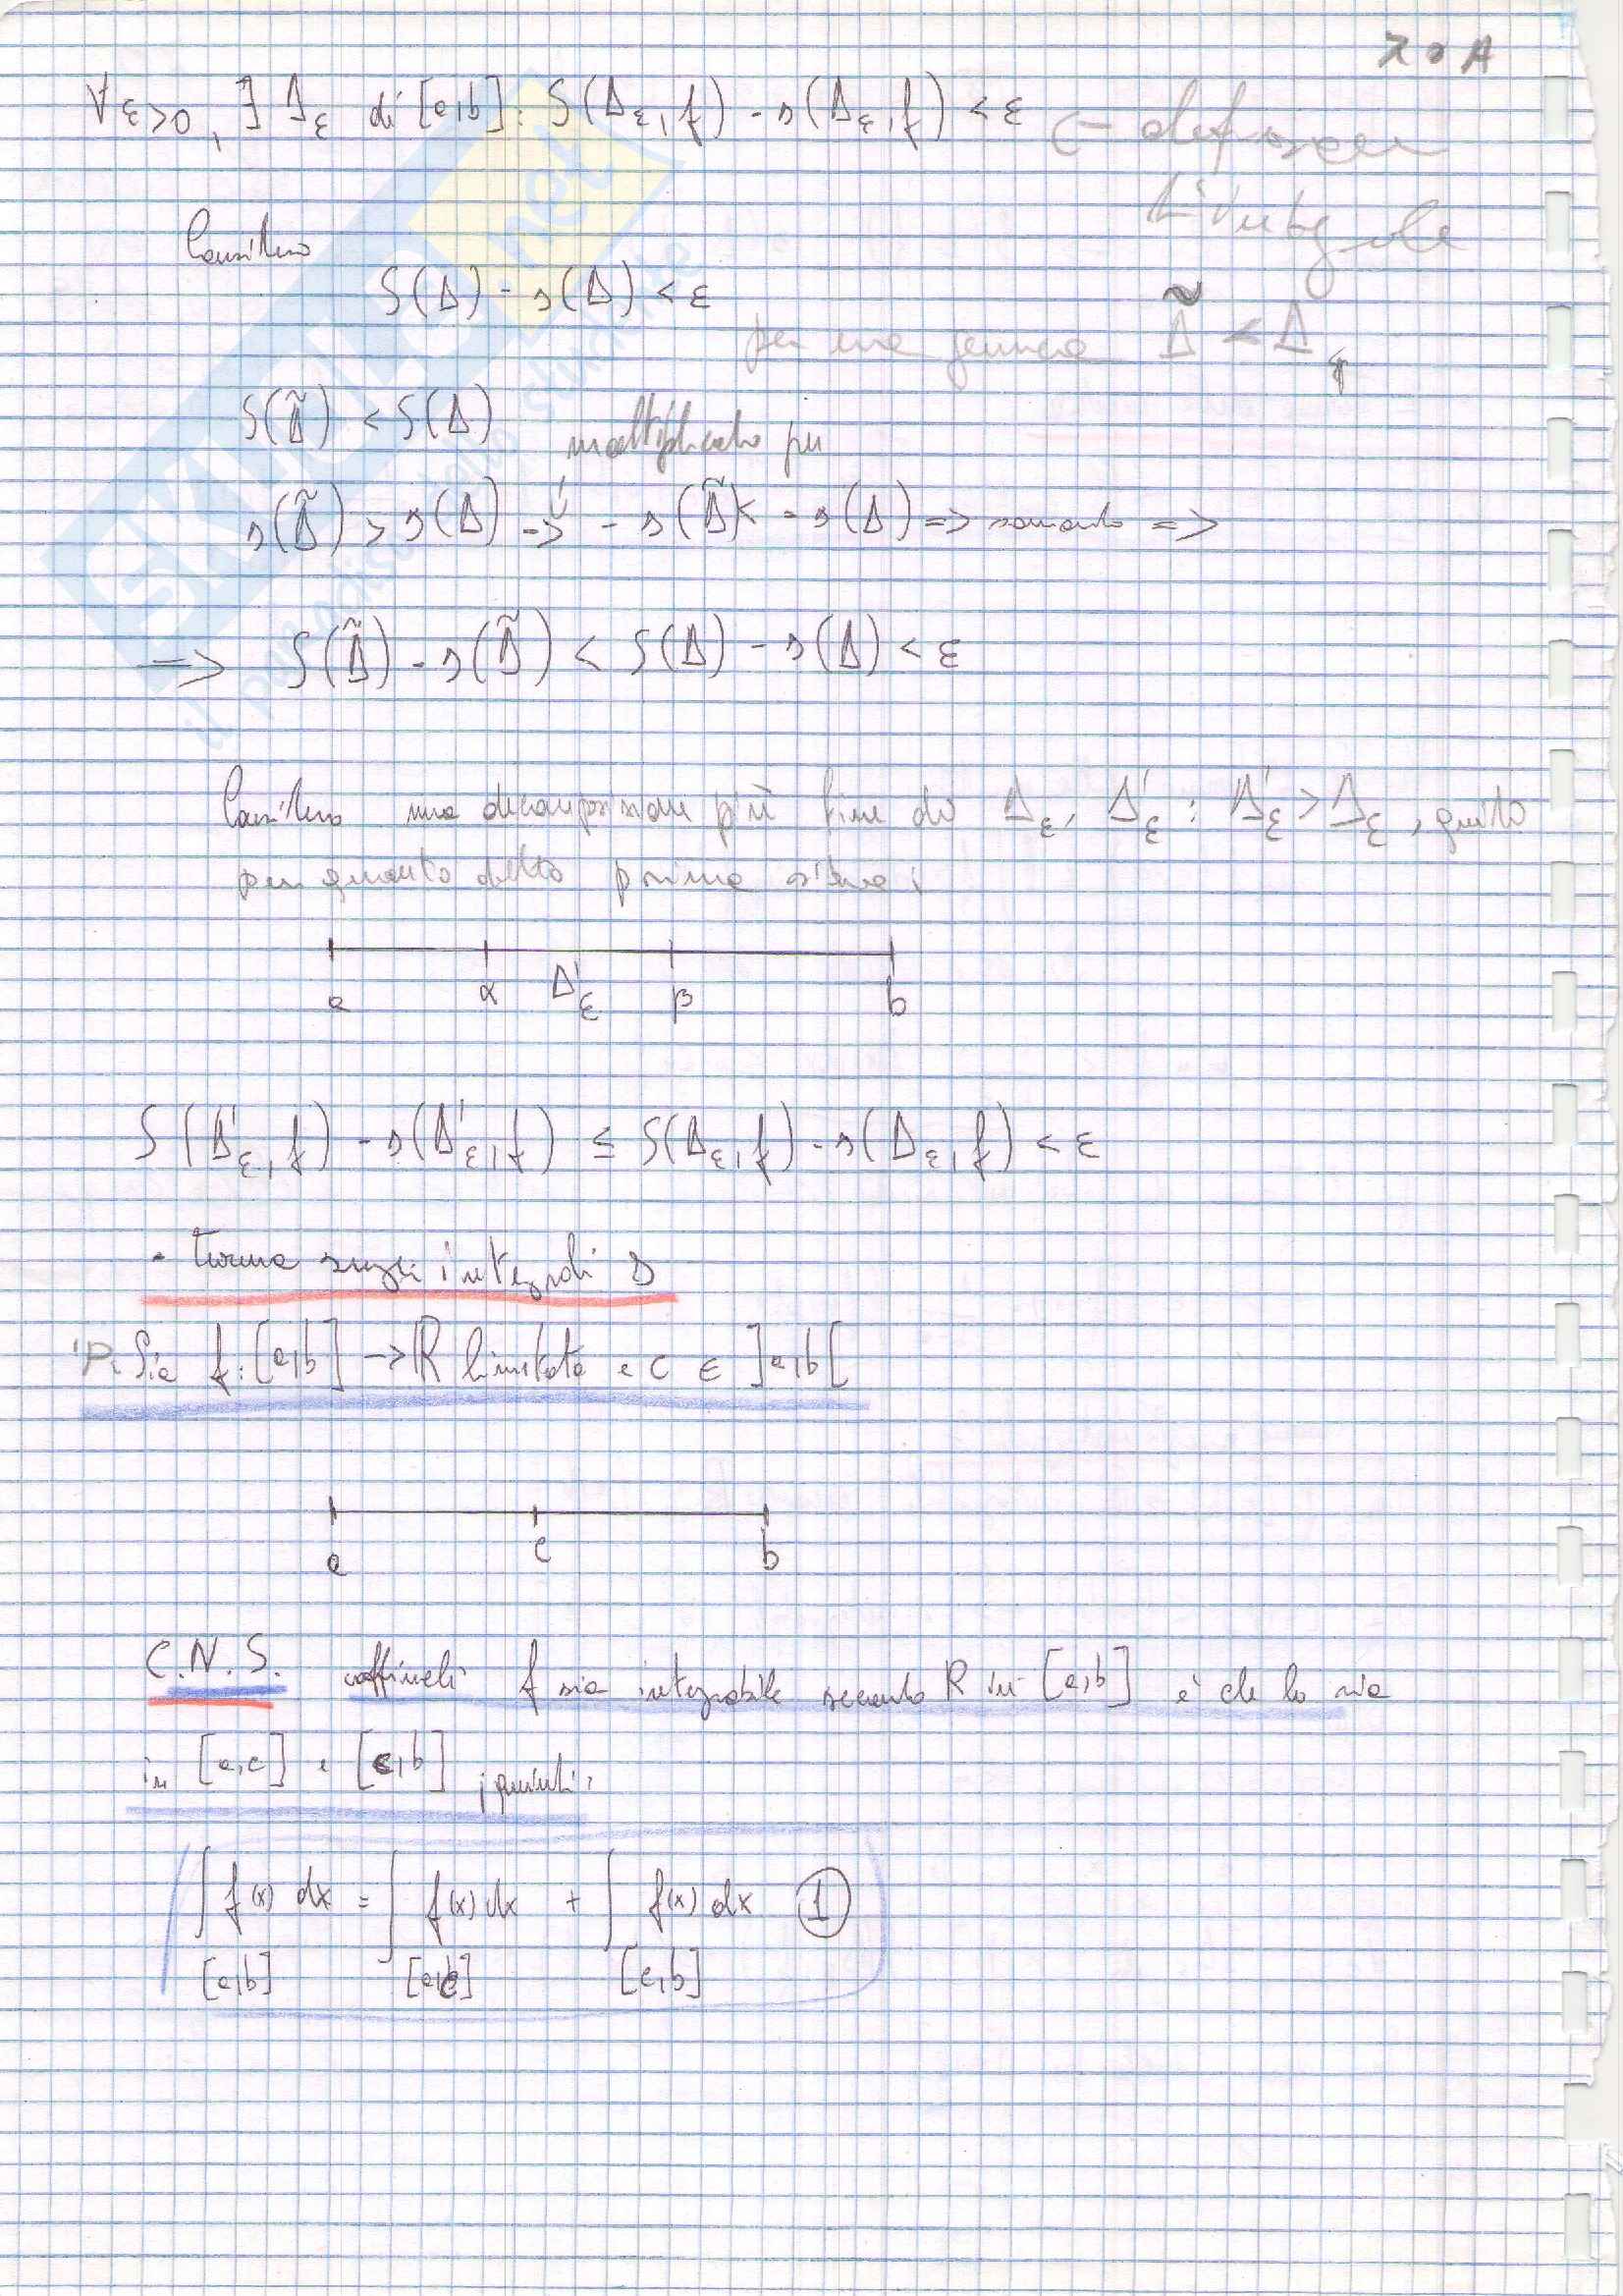 ∀ε>0, ∃ Δε di [a,b]: S(Δε,f) - s(Δε,f) < ε
L'integrale
Considero
S(Δ) - s(Δ) < ε
per una Δ̃ < Δ
S(Δ̃) < S(Δ) moltiplicato per
s(Δ̃) > s(Δ) => - s(Δ̃) < - s(Δ) => sommando =>
=> S(Δ̃) - s(Δ̃) < S(Δ) - s(Δ) < ε
Considero una decomposizione più fine di Δε, Δ'ε : Δ'ε > Δε, quindi
per quanto detto prima si ha:
a α Δ'ε β b
S(Δ'ε,f) - s(Δ'ε,f) ≤ S(Δε,f) - s(Δε,f) < ε
- teorema sugli integrali
Sia f: [a,b] -> R limitata e c ∈ ]a,b[
a c b
C.N.S. affinché f sia integrabile secondo R in [a,b] è che lo sia
in [a,c] e [c,b], quindi:
∫ f(x) dx = ∫ f(x) dx + ∫ f(x) dx ①
[a,b] [a,c] [c,b]
SKUOLA.net